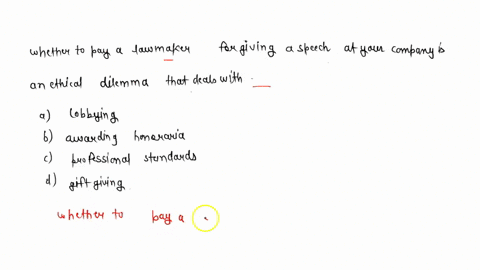 whether to pay a lawmaker for giving a speech at your company is
an ethical dilemma that deals with __
a) lobbying
b) awarding honoraria
c) professional standards
d) gift giving
whether to pay a